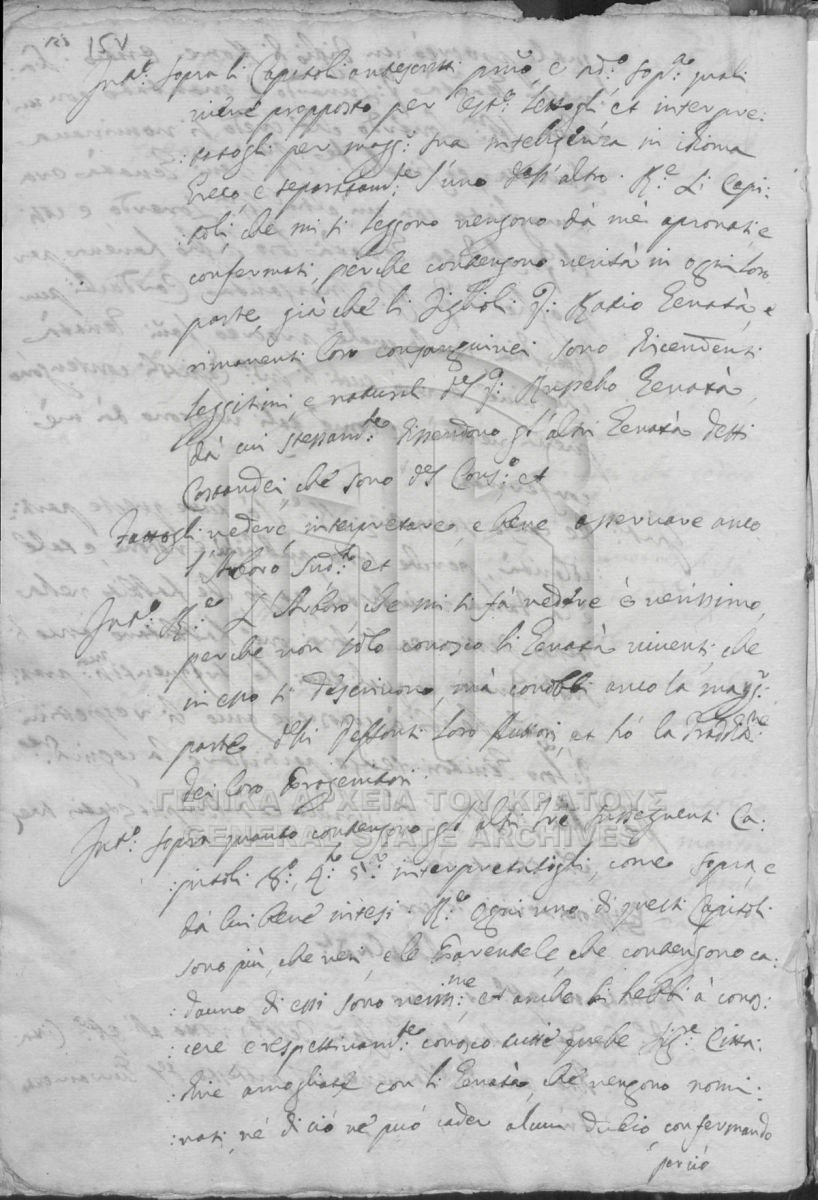 151 15V
Int.º sopra li Capitoli antescritti primo, e 2d.º sop.ª quali
viene propposto per Test.º lettogli et interpre:
:tatogli per magg.r sua inteligenza in idioma
Greco, e separatam.te l'uno dall'altro. R.e Li Capi:
:toli, che mi si leggono vengono dà mè aprovati, e
confermati, perche contengono verità in ogni loro
parte, già che li figlioli q: Zenatà, e
rimanenti loro consanguinei, sono discendenti
leggitimi, e naturali del q: Zenatà,
dà cui stessam.te dissendono gl'altri Zenatà detti
Costandei, che sono del Cons.º et
Fattogli vedere, interpretare, e bene osservare anco
l'Arboro sud.to et
Int.º R.e L'Arboro, che mi si fà vedere è verissimo,
perche non solo conosco li Zenatà viventi, che
in esso si descrivono, mà conobbi anco la magg.r
parte delli deffonti loro Auttori, et hò la Traditt.ne
dei loro Progenitori.
ΓΕΝΙΚΑ ΑΡΧΕΙΑ ΤΟΥ ΚΡΑΤΟΥΣ
GENERAL STATE ARCHIVES
Int.º sopra quanto contengono gl'altri trè susseguenti Ca:
:pitoli 3.º, 4.to 5.to interpretatogli, come sopra, e
dà lui bene intesi. R.e Ogni uno di questi Capitoli
sono più, che veri, e le Parentele, che contengono ca:
:dauno di essi sono veriss.me, et anche li hebbi à conos:
:cere e respettivam.te conosco tutte quelle Sig.e Citta:
:dine amogliate con li Zenatà, che vengono nomi:
:nati, ne di ciò ne può cader alcun dubio, confermando
perciò